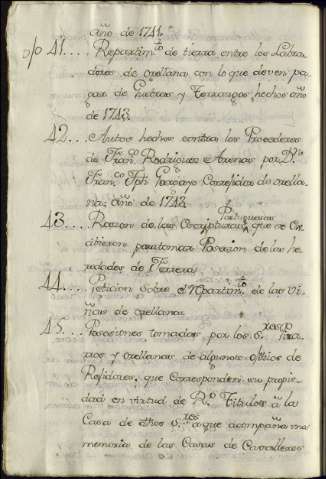 año de 1741.
41... Repartim.to de tierra entre los Labra
dores de orellana con lo que deven pa
gar de Quiebras y Terrazgos hechos año
de 1743.
42... Autos hechos contra los Procederes
de Fran.co Rodriguez Arenas por D.n
Fran.co Jph Corregidor de orella
na; año de 1743.
43... Razon de las Escripturas Portuguesas que se Ex
ibieron para tomar Posesion de los he
redades de
44... Peticion sobre el Repartim.to de las Vi
ñas de orellana.
45... Posesiones tomadas por los S.res
y orellanas de algunos oficios de
Rexidores, que corresponden en propie
dad en virtud de R.s Titulos a la
Casa de dhos S.res a que acompaña una
memoria de las Casas de Cavalleros